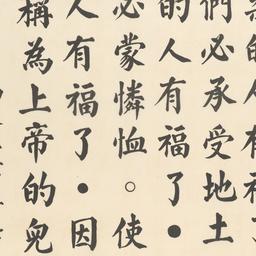 們必承受地土
的人有福了●
必蒙憐恤○使
人有福了●因
稱為上帝的兒